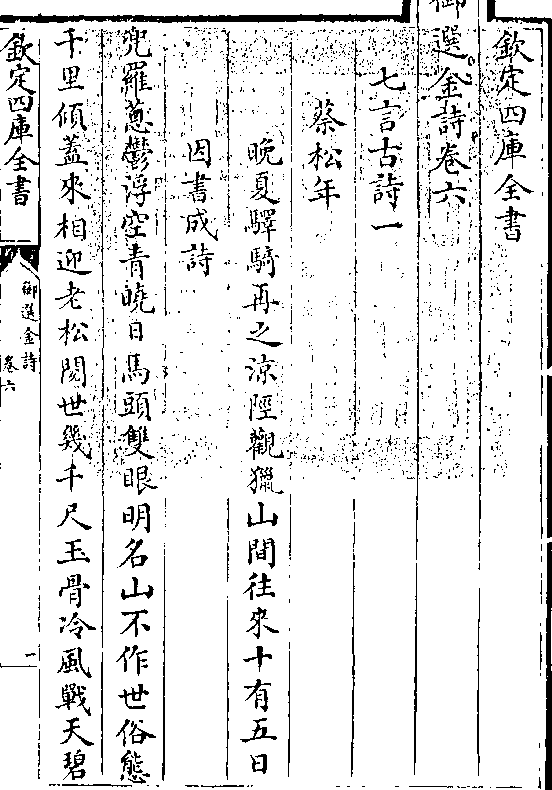 欽定四庫全書
御選金詩卷六
七言古詩一
蔡松年
晚夏驛騎再之涼陘觀獵山間往來十有五日
因書成詩
兜羅葱鬱浮空青曉日馬頭雙眼明名山不作世俗態
千里傾蓋來相迎老松閱世幾千尺玉骨冷風戰天碧
欽定四庫全書
御選金詩
卷六
一